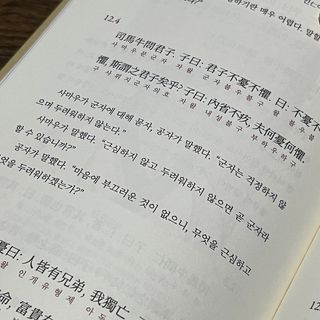 기만 매우 어렵다. 말할
12.4
司馬牛問君子. 子曰: 君子不憂不懼. 曰: 不憂不
사마우문군자 자왈 군자불우불구 왈 불우불
懼, 斯謂之君子矣乎? 子曰: 內省不疚, 夫何憂何懼.
구 사위지군자의호 자왈 내성불구 부하우하구
사마우가 군자에 대해 묻자, 공자가 말했다. "군자는 걱정하지 않
으며 두려워하지 않는다."
사마우가 말했다. "근심하지 않고 두려워하지 않으면 곧 군자라
할 수 있습니까?"
공자가 말했다. "마음에 부끄러운 것이 없으니, 무엇을 근심하고
엇을 두려워하겠는가?"
憂曰: 人皆有兄弟, 我獨亡.
왈 인개유형제 아독
命, 富貴在
12